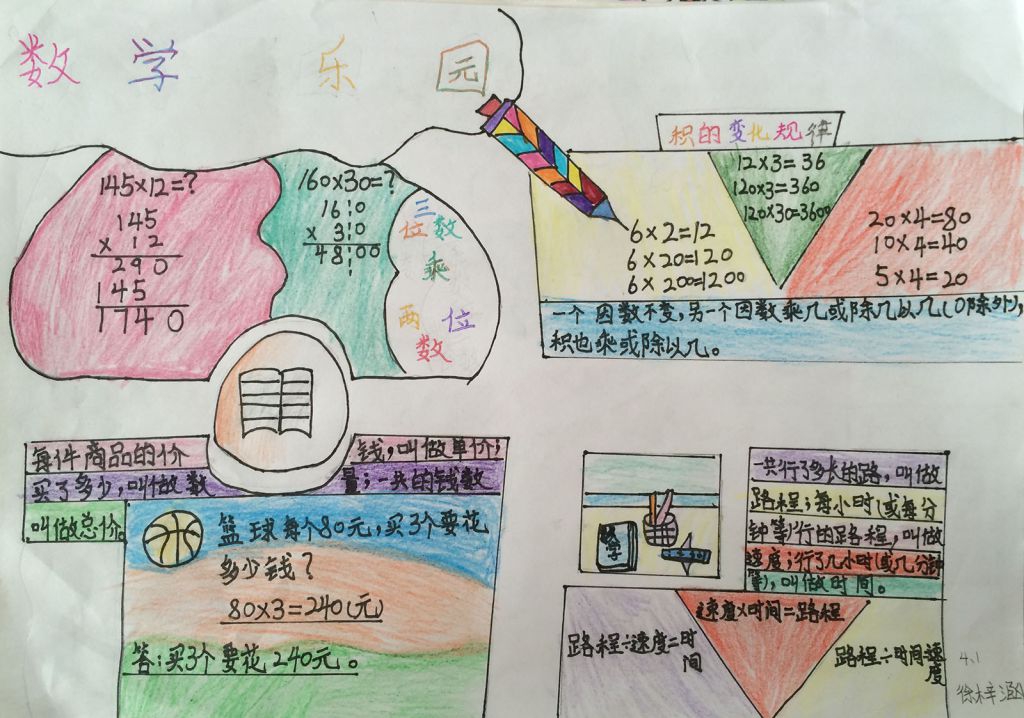 数学乐园
145×12=?
145
× 12
290
145
1740
160×30=?
16 0
× 3 0
48 00
三
位数
乘
两位
数
积的变化规律
12×3=36
120×3=360
120×30=3600
6×2=12
6×20=120
6×200=1200
20×4=80
10×4=40
5×4=20
一个因数不变,另一个因数乘几或除几以几(0除外),
积也乘或除以几。
每件商品的价钱,叫做单价;
买了多少,叫做数量;一共的钱数
叫做总价。
篮球每个80元,买3个要花
多少钱?
80×3=240(元)
答:买3个要花240元。
数学
一共行了多长的路,叫做
路程;每小时(或每分
钟等)行的路程,叫做
速度;行了几小时(或几分钟
等),叫做时间。
速度×时间=路程
路程÷速度=时
间
路程÷时间=速
度
4.1
徐梓涵